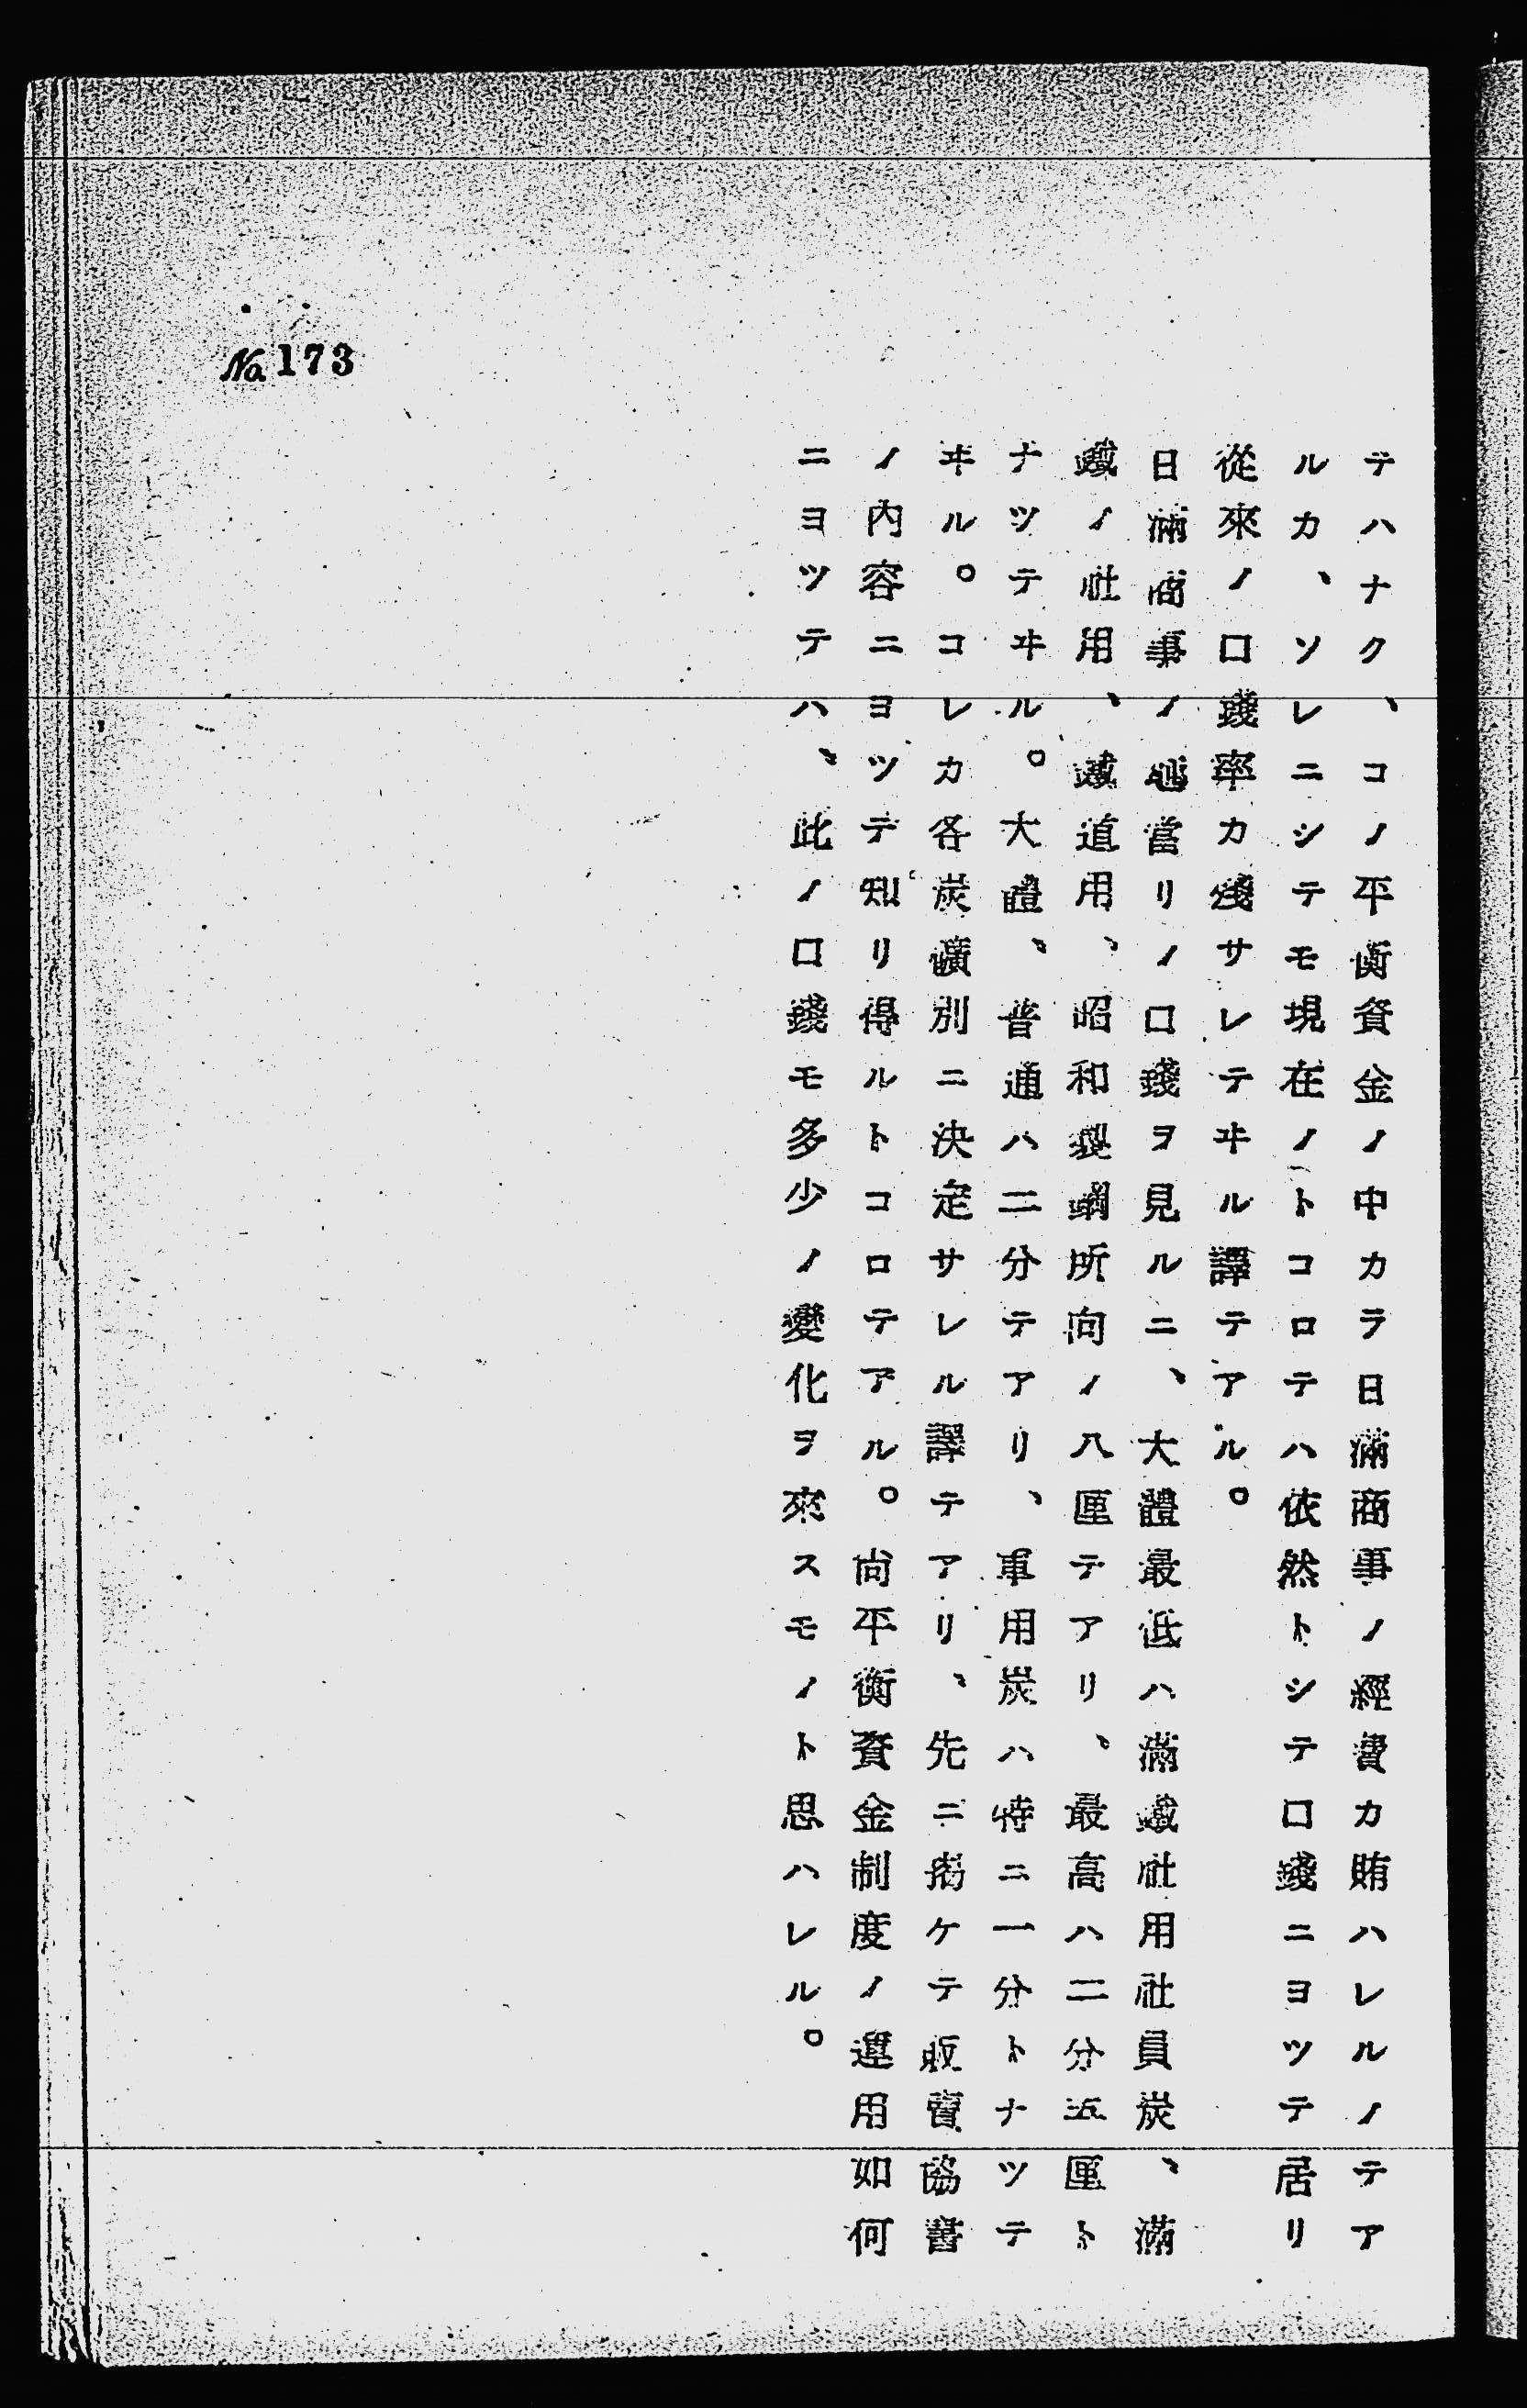 テハナク、コノ平衡資金ノ中カラ日滿商事ノ經費カ賄ハレルノテア
ルカ、ソレニシテモ現在ノトコロテハ依然トシテ口錢ニヨツテ居リ
從來ノ口錢率カ殘サレテヰル譯テアル。
日滿商事ノ瓲當リノ口錢ヲ見ルニ、大體最低ハ滿鐵社用社員炭、滿
鐵ノ社用、鐵道用、昭和製鋼所向ノ八厘テアリ、最高ハ二分五厘ト
ナツテヰル。大體、普通ハ二分テアリ、軍用炭ハ特ニ一分トナツテ
ヰル。コレカ各炭礦別ニ決定サレル譯テアリ、先ニ揭ケテ販賣協書
ノ內容ニヨツテ知リ得ルトコロテアル。尙平衡資金制度ノ運用如何
ニヨツテハ、此ノ口錢モ多少ノ變化ヲ來スモノト思ハレル。
No 173